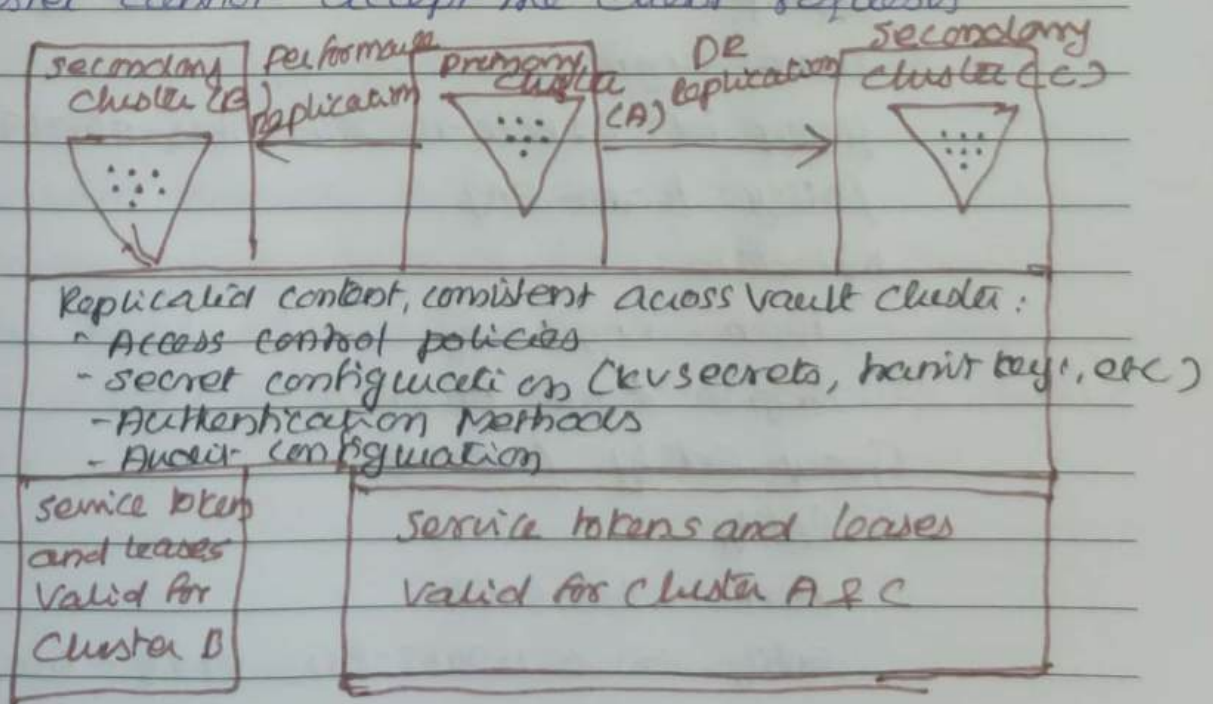 cannot accept the client requests
secondary
cluster (B)
performance
Replication
primary
cluster
(A)
DR
Replication
secondary
cluster (C)
Replicated content, consistent across vault cluster:
- Access control policies
- secret configuration (kv secrets, transit keys, etc)
- Authentication Methods
- Audit configuration
service token
and leases
valid for
cluster B
service tokens and leases
valid for cluster A & C